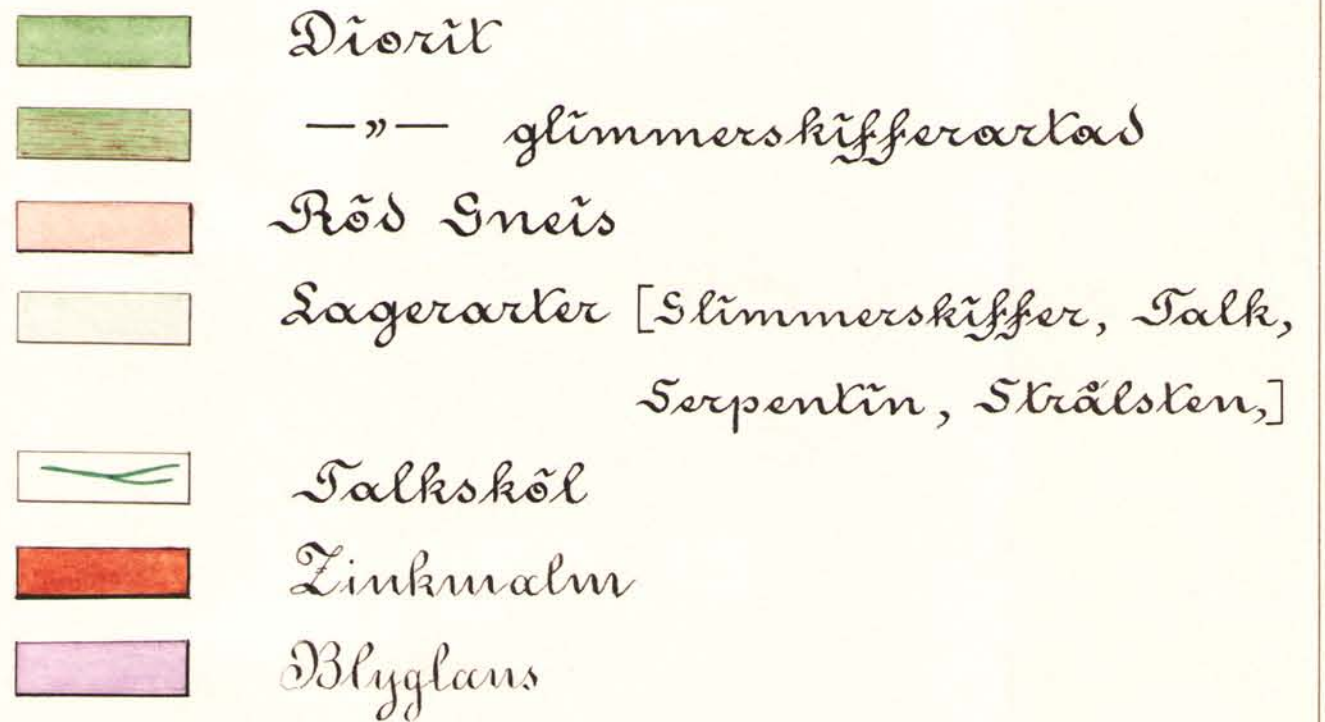 Diorit
—„— glimmerskifferartad
Röd Gneis
Lagerarter [Glimmerskiffer, Talk,
Serpentin, Strålsten,]
Talksköl
Zinkmalm
Blyglans